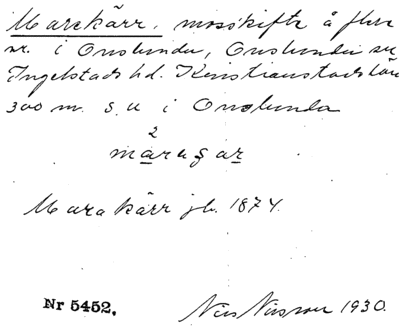 Marekärr, mosskifte å flera
nr. i Onslunda, Onslunda sn
Ingelstads hd. Kristianstads län
300 m. s. v. i Onslunda
2
marasar
Marakärr jb. 1874.
Nr 5452. Nils Nilsson 1930.